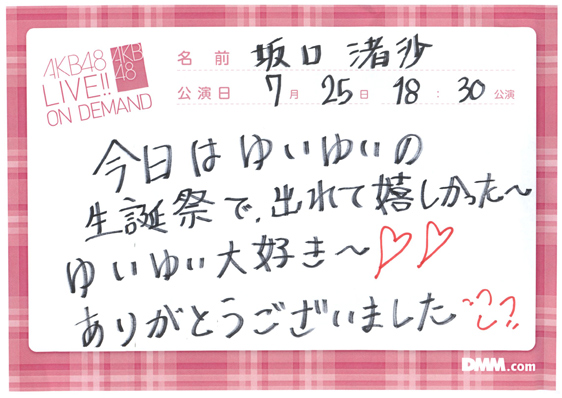 AKB48
LIVE!!
ON DEMAND
AKB
48
名前 坂口 渚沙
公演日 7月 25日 18:30公演
今日はゆいゆいの
生誕祭で、出れて嬉しかった〜
ゆいゆい大好き〜♡♡
ありがとうございました
DMM.com